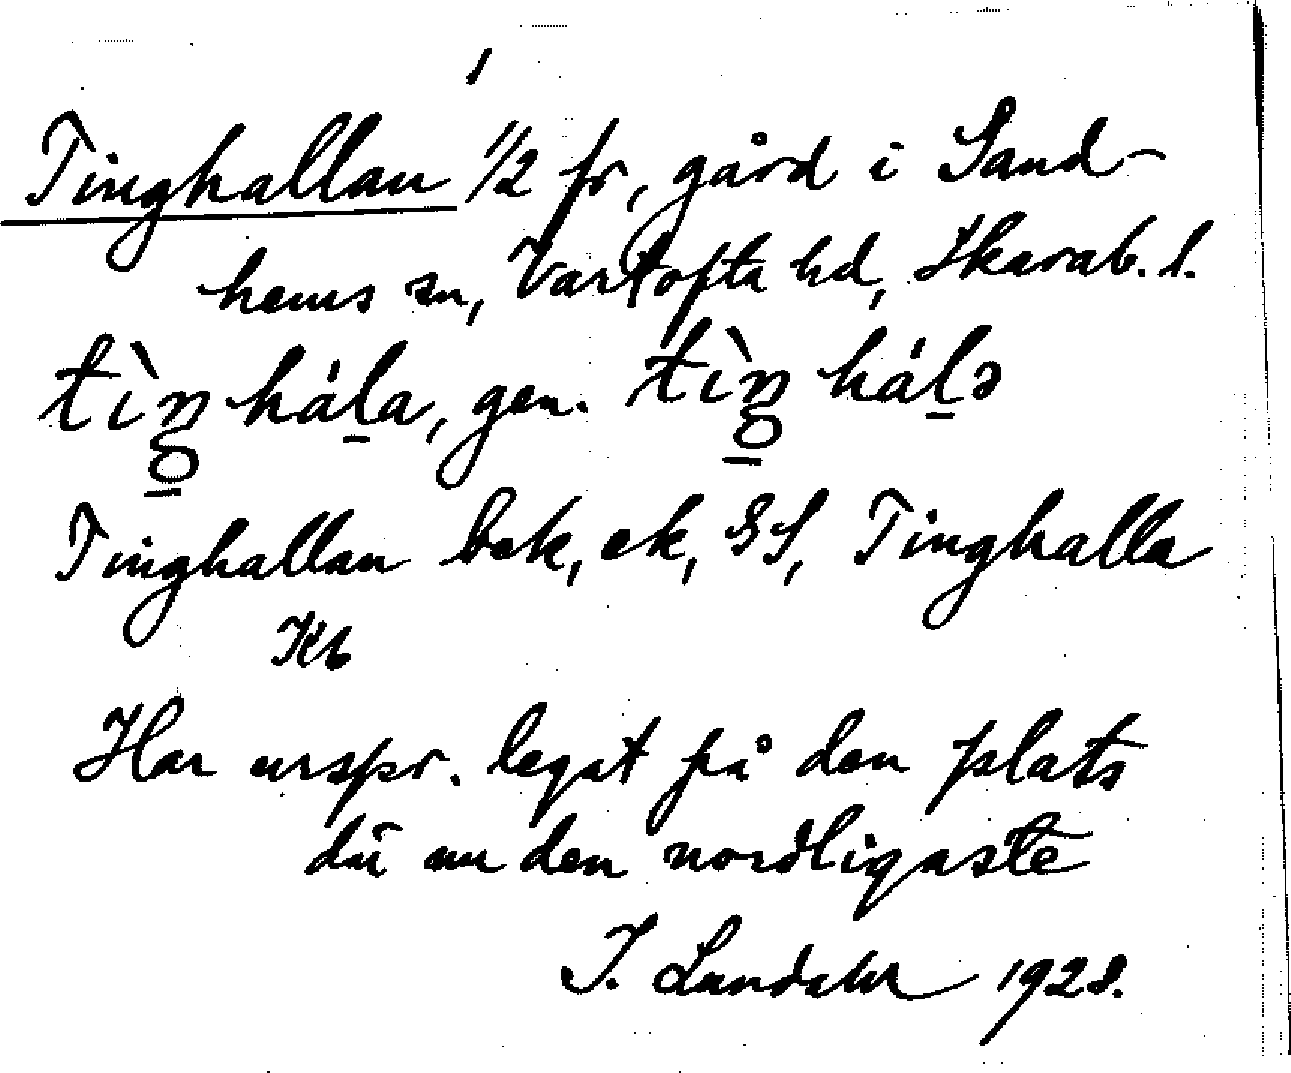 1
Tinghallan 1/2 fr, gård i Sand-
hems sn, Vartofta hd, Skarab. l.
tìŋ háḻa, gen. tìŋ háḻə
Tinghallan bok, ek, GS, Tinghalla
Kb
Har urspr. legat på den plats
där nu den nordligaste
I. Lundahl 1928.